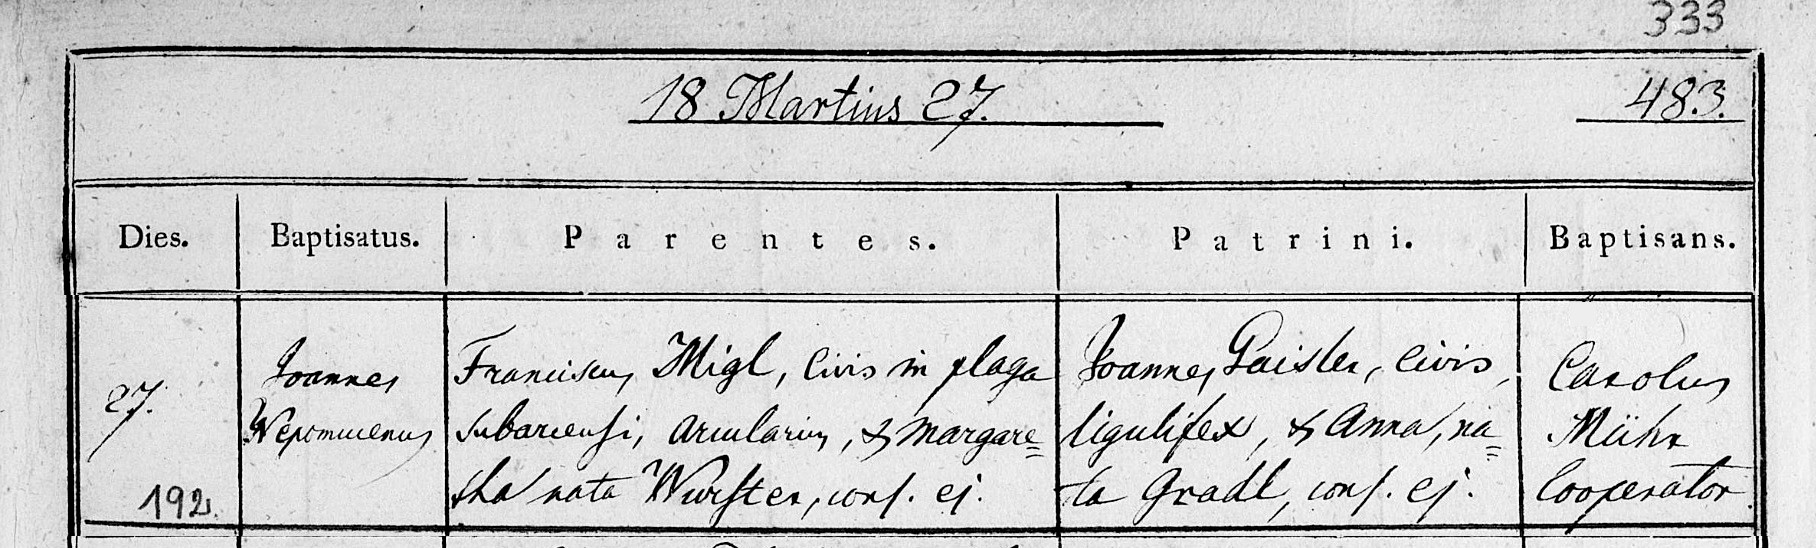 333
18 Martius 27. 483.
Dies. Baptisatus. Parentes. Patrini. Baptisans.
27.
192.
Joannes
Nepomucenus
Franciscus Migl, Civis in plaga
subarcensi, arcularius, & Margare=
tha nata Wurster, cons. ej.
Joannes Gaisler, Civis,
ligulifex, & Anna, na=
ta Gradl, cons. ej.
Carolus
Mühr
Cooperator